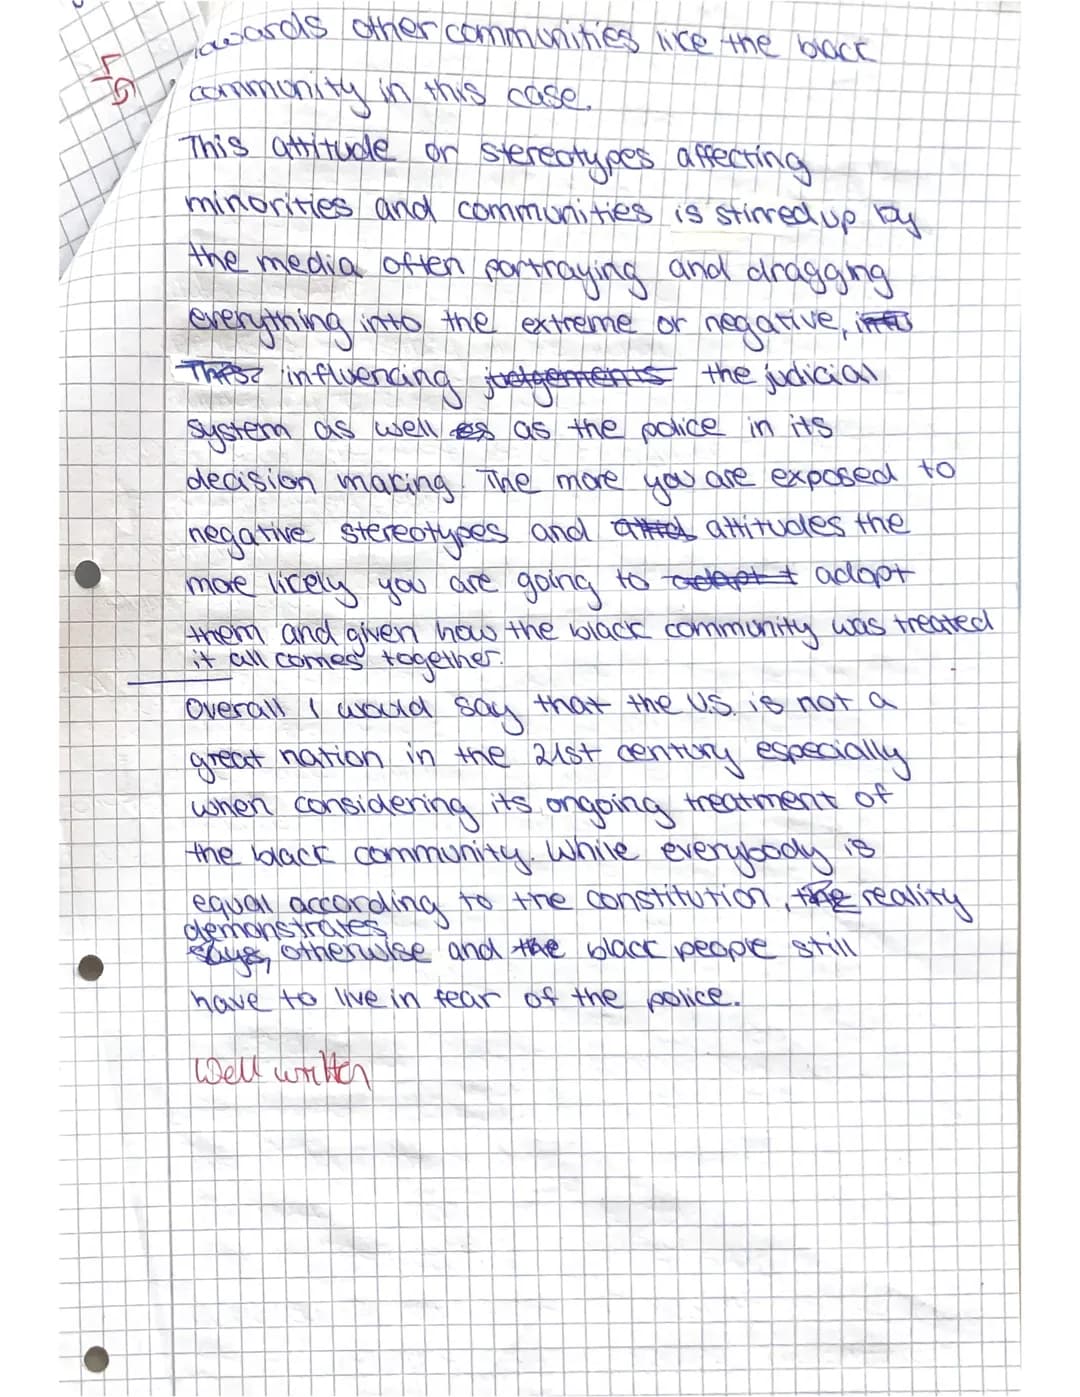 towards other communities like the black
community in this case.
This attitude or stereotypes affecting
minorities and communities is stirred up by
the media often portraying and dragging
everything into the extreme or negative,
influencing judgements the judicial
system as well as as the police in its
decision making. The more you are exposed to
negative stereotypes and attitudes the
more likely you are going to adapt t adopt
them and given how the black community was treated
it all comes together.
Overall I would say that the U.S. is not a
great nation in the 21st century especially
when considering its ongoing treatment of
the black community. While everybody is
equal according to the constitution, the reality
demonstrates
says, otherwise and the black people still
have to live in fear of the police.
Well written